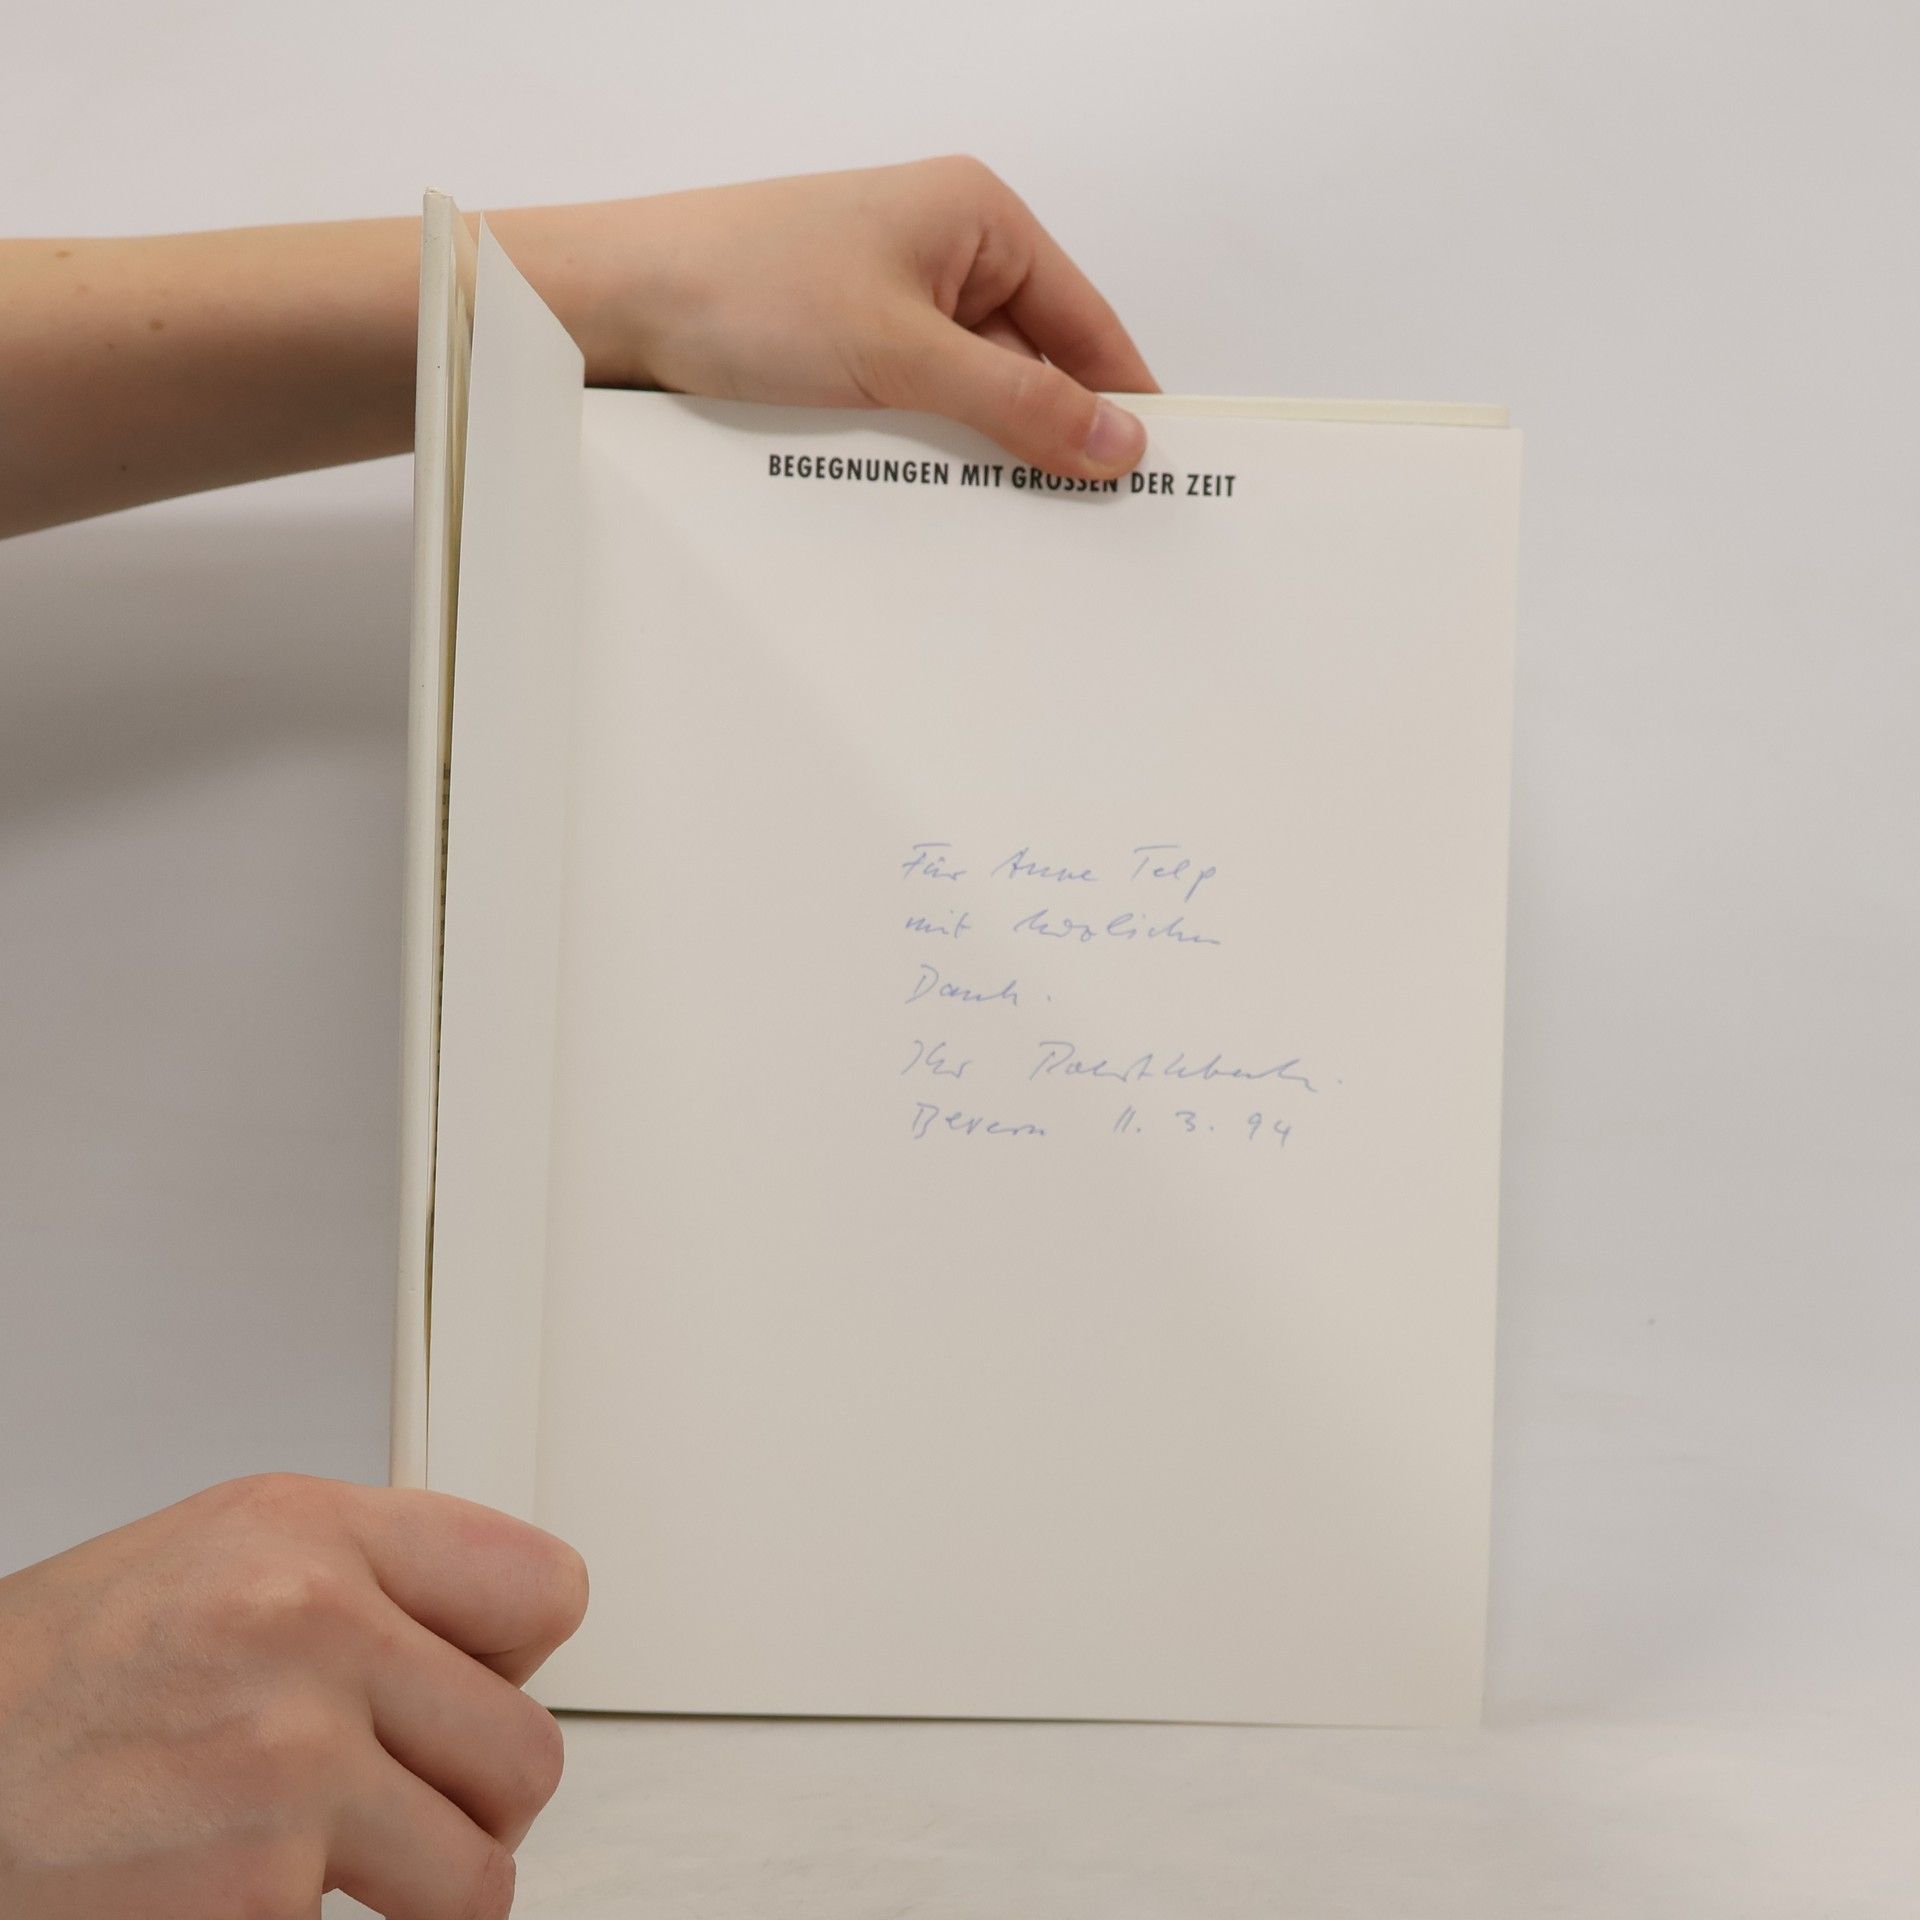 BEGEGNUNGEN MIT GROSSEN DER ZEIT
Für Anne Telp
mit herzlichem
Dank.
Ihr Robert Lebeck.
Bevern 11. 3. 94